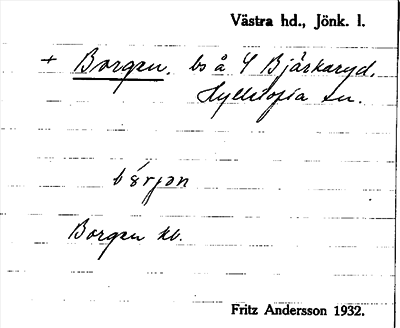 Västra hd., Jönk. l.
+ Borgen. bs å Y Bjärkaryd.
Hylletofta sn.
bɤ́rjən
Borgen kb.
Fritz Andersson 1932.